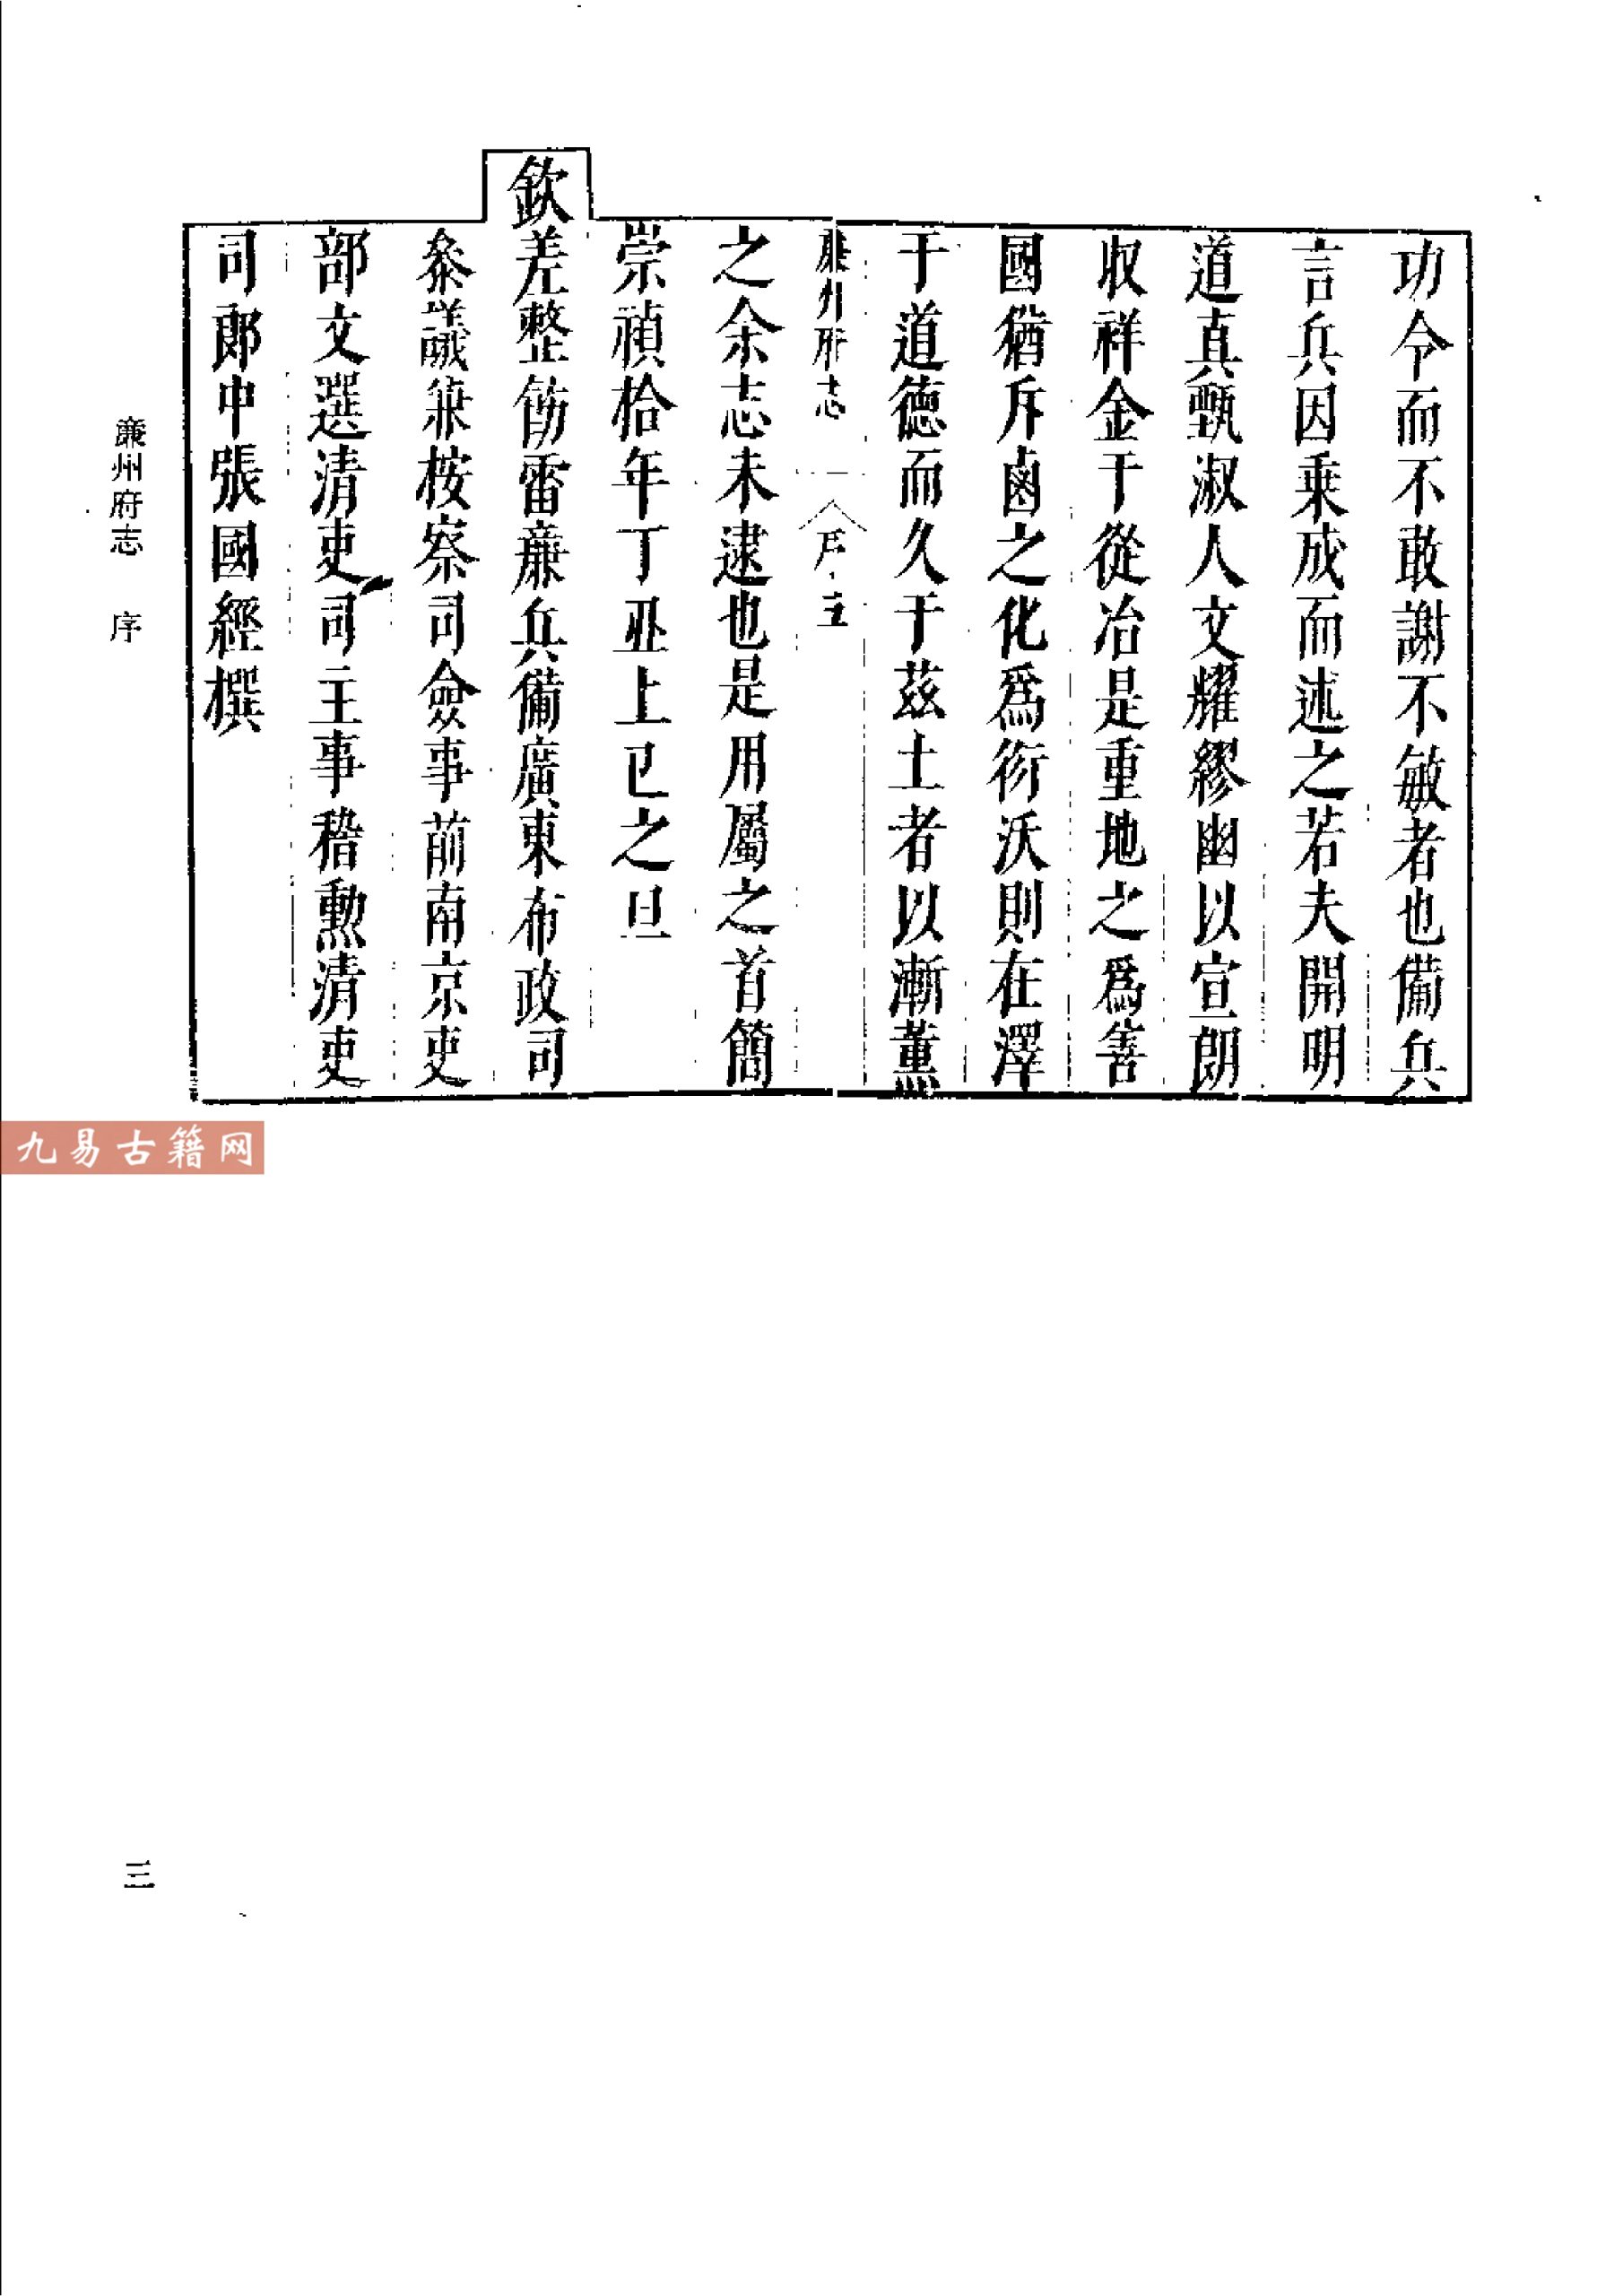 功令而不敢謝不敏者也備兵
言兵因乗成而述之若夫開明
道真甄淑人文耀繆幽以宣朗
収祥金于從冶是重地之爲害
國猶斥鹵之化爲衍沃則在澤
于道德而久于茲土者以漸薰
廉州府志 序 五
之余志未逮也是用屬之首簡
崇禎拾年丁丑上巳之旦
欽差整飭雷亷兵備廣東布政司
叅議兼桉察司僉事前南京吏
部文選清吏司主事稽勲清吏
司郎中張國經撰
廉州府志 序
三
九易古籍网